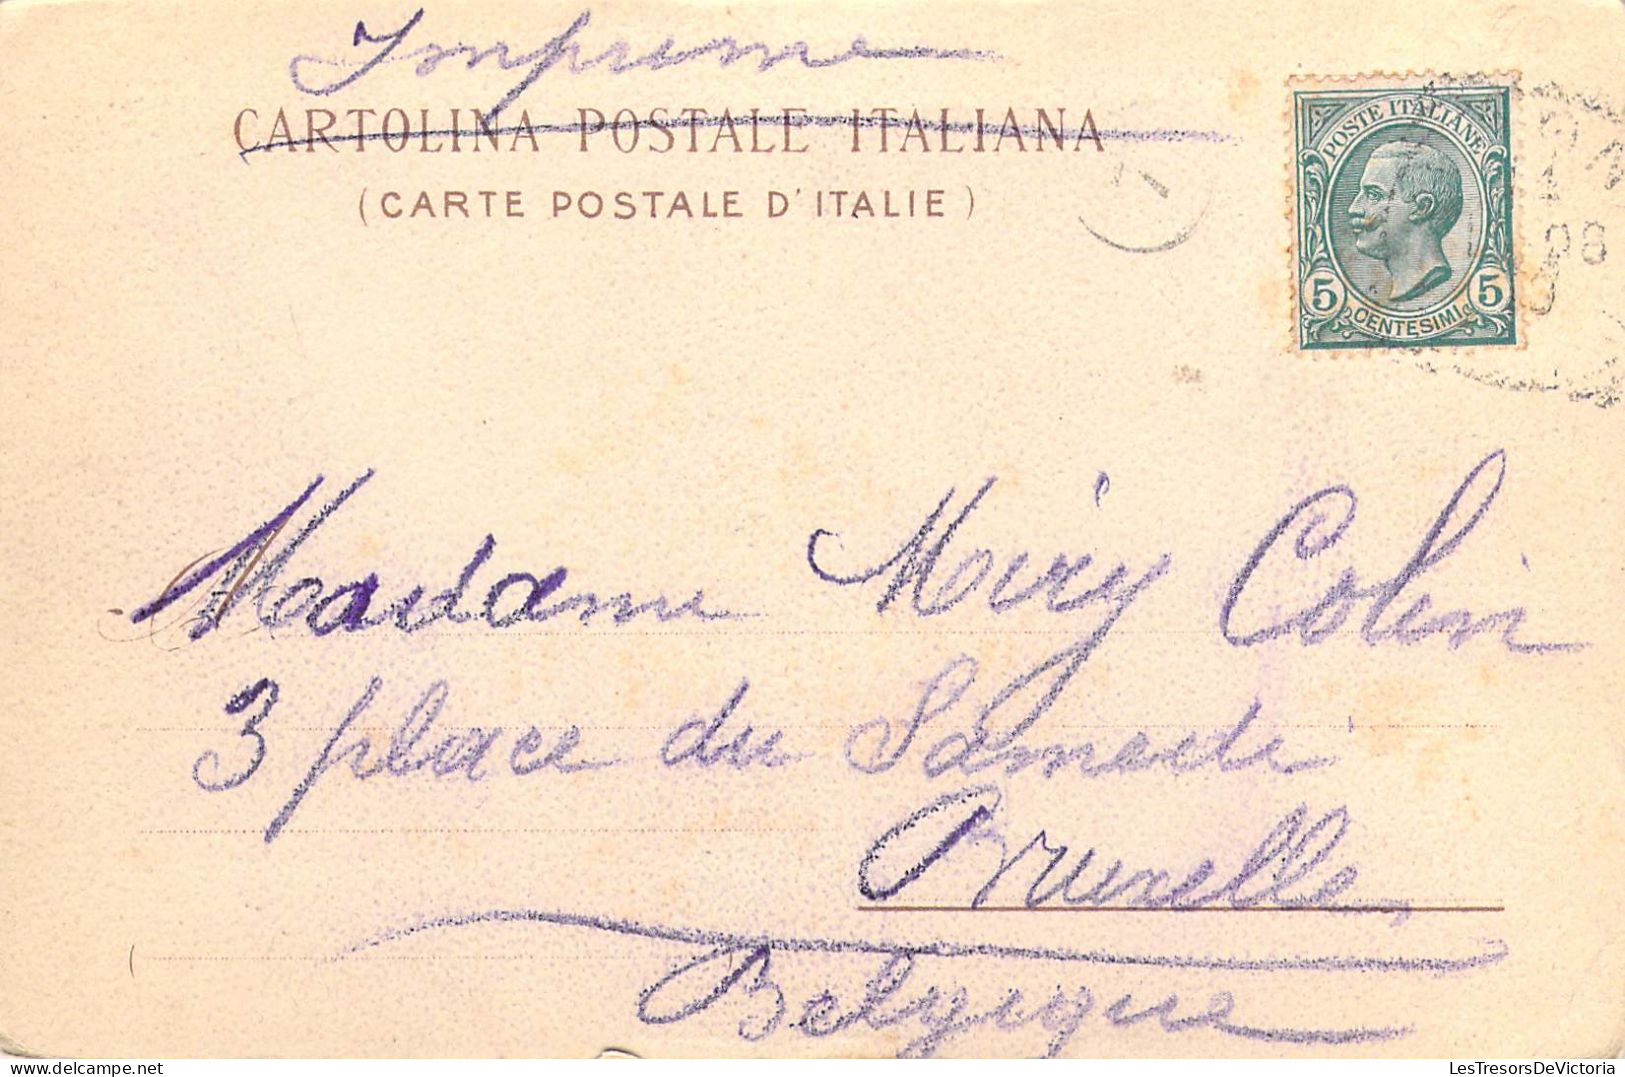 Imprime
CARTOLINA POSTALE ITALIANA
(CARTE POSTALE D'ITALIE)
POSTE ITALIANE
5 CENTESIMI 5
08
Madame Colin
3 place du Samedi
Bruxelle,
Belgique
LesTresorsDeVictoria